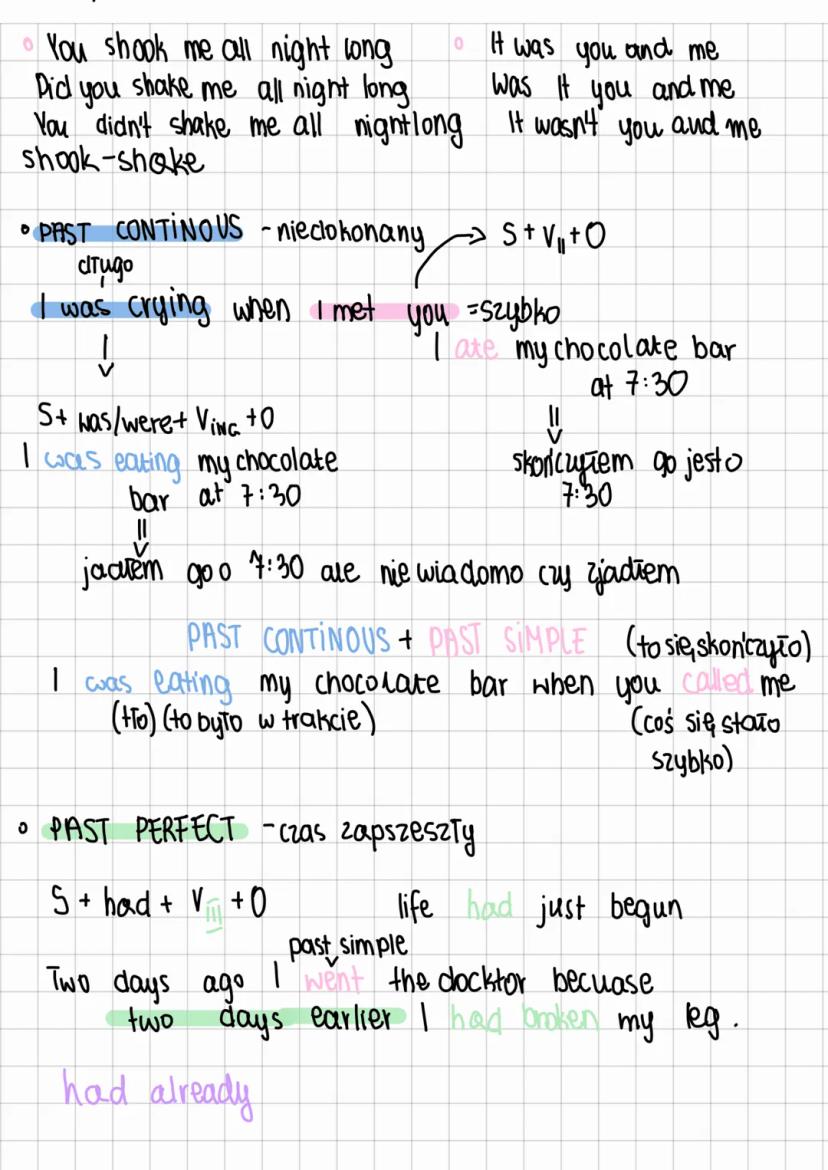 You shook me all night long
Did you shake me all night long
You didn't shake me all nightlong
shook-shake
It was you and me
Was It you and me
It wasn't you and me
PAST CONTINOUS - niedokonany
S + VII + O
długo
I was crying when I met you = szybko
I ate my chocolate bar
at 7:30
S + was/were + VING + O
I was eating my chocolate
bar at 7:30
skończyłem go jesto
7:30
jadłem go o 7:30 ale nie wiadomo czy zjadłem
PAST CONTINOUS + PAST SIMPLE (to się skończyło)
I was eating my chocolate bar when you called me
(tło) (to było w trakcie)
(coś się stało
szybko)
PAST PERFECT - czas zapszeszły
S + had + VIII + O
life had just begun
past simple
Two days ago I went the docktor becuase
two days earlier I had broken my leg.
had already